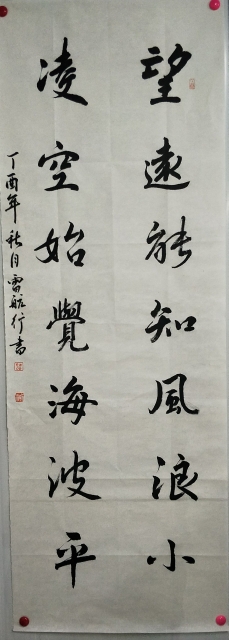 望遠能知風浪小
凌空始覺海波平
丁酉年秋月雷航行書